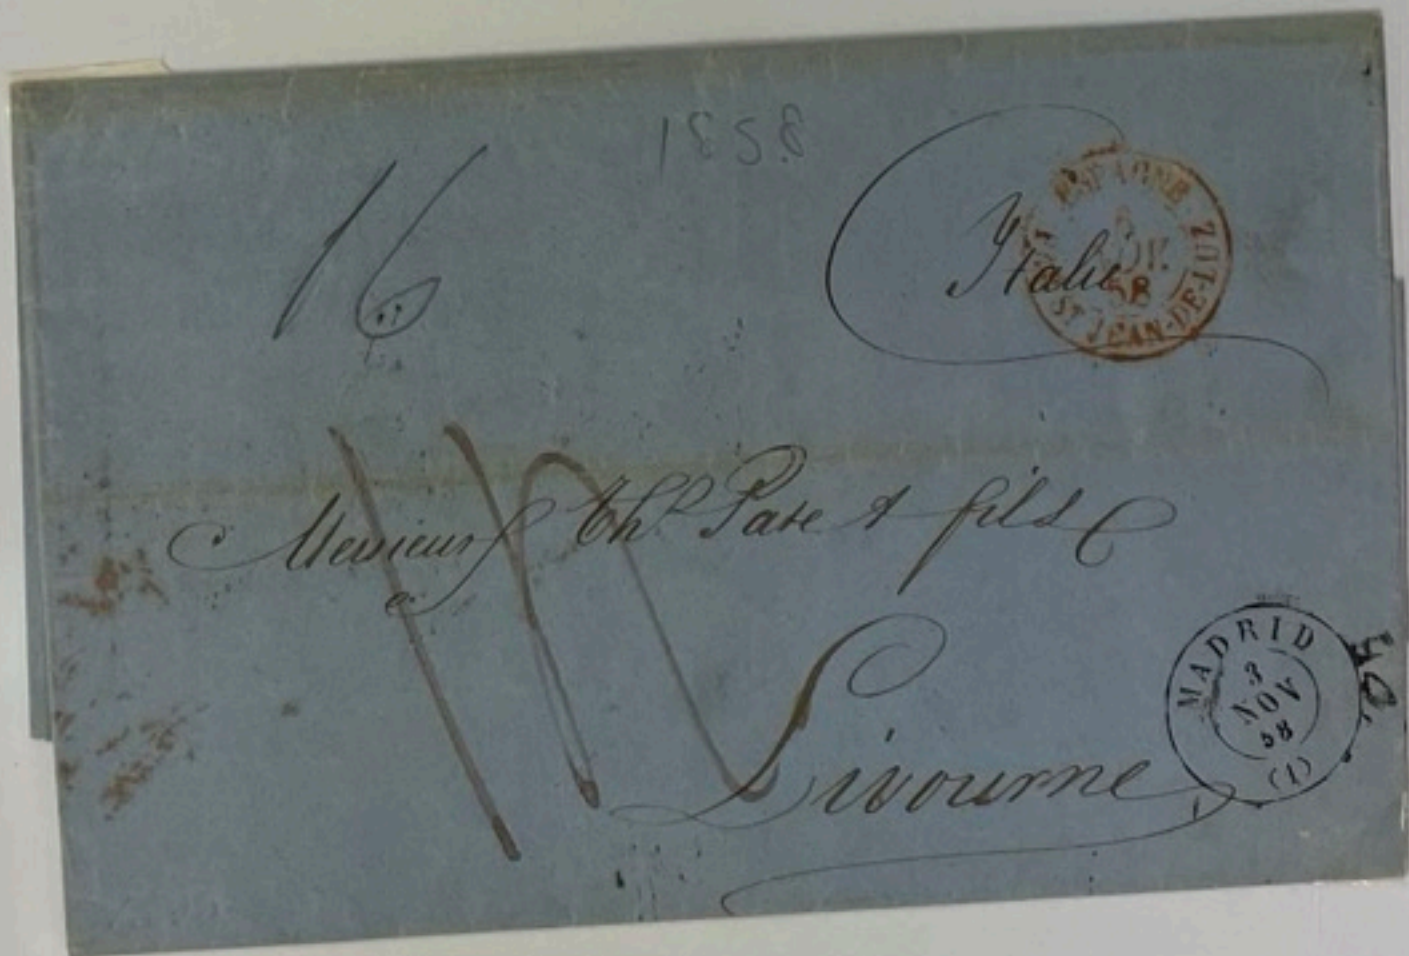 1858
16
Italie
ESPAGNE
NOV.
58
ST JEAN-DE-LUZ
Messieurs Thre Pate & fils
Livourne
MADRID
3
NOV
58
(1)